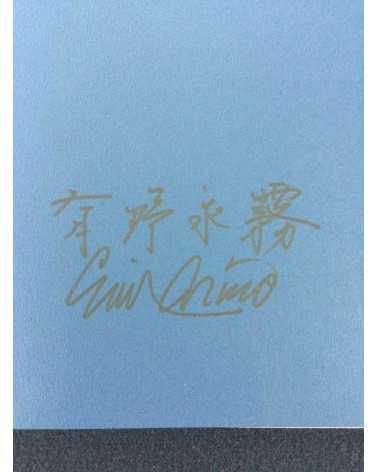 有野永霧
Eimu Arino